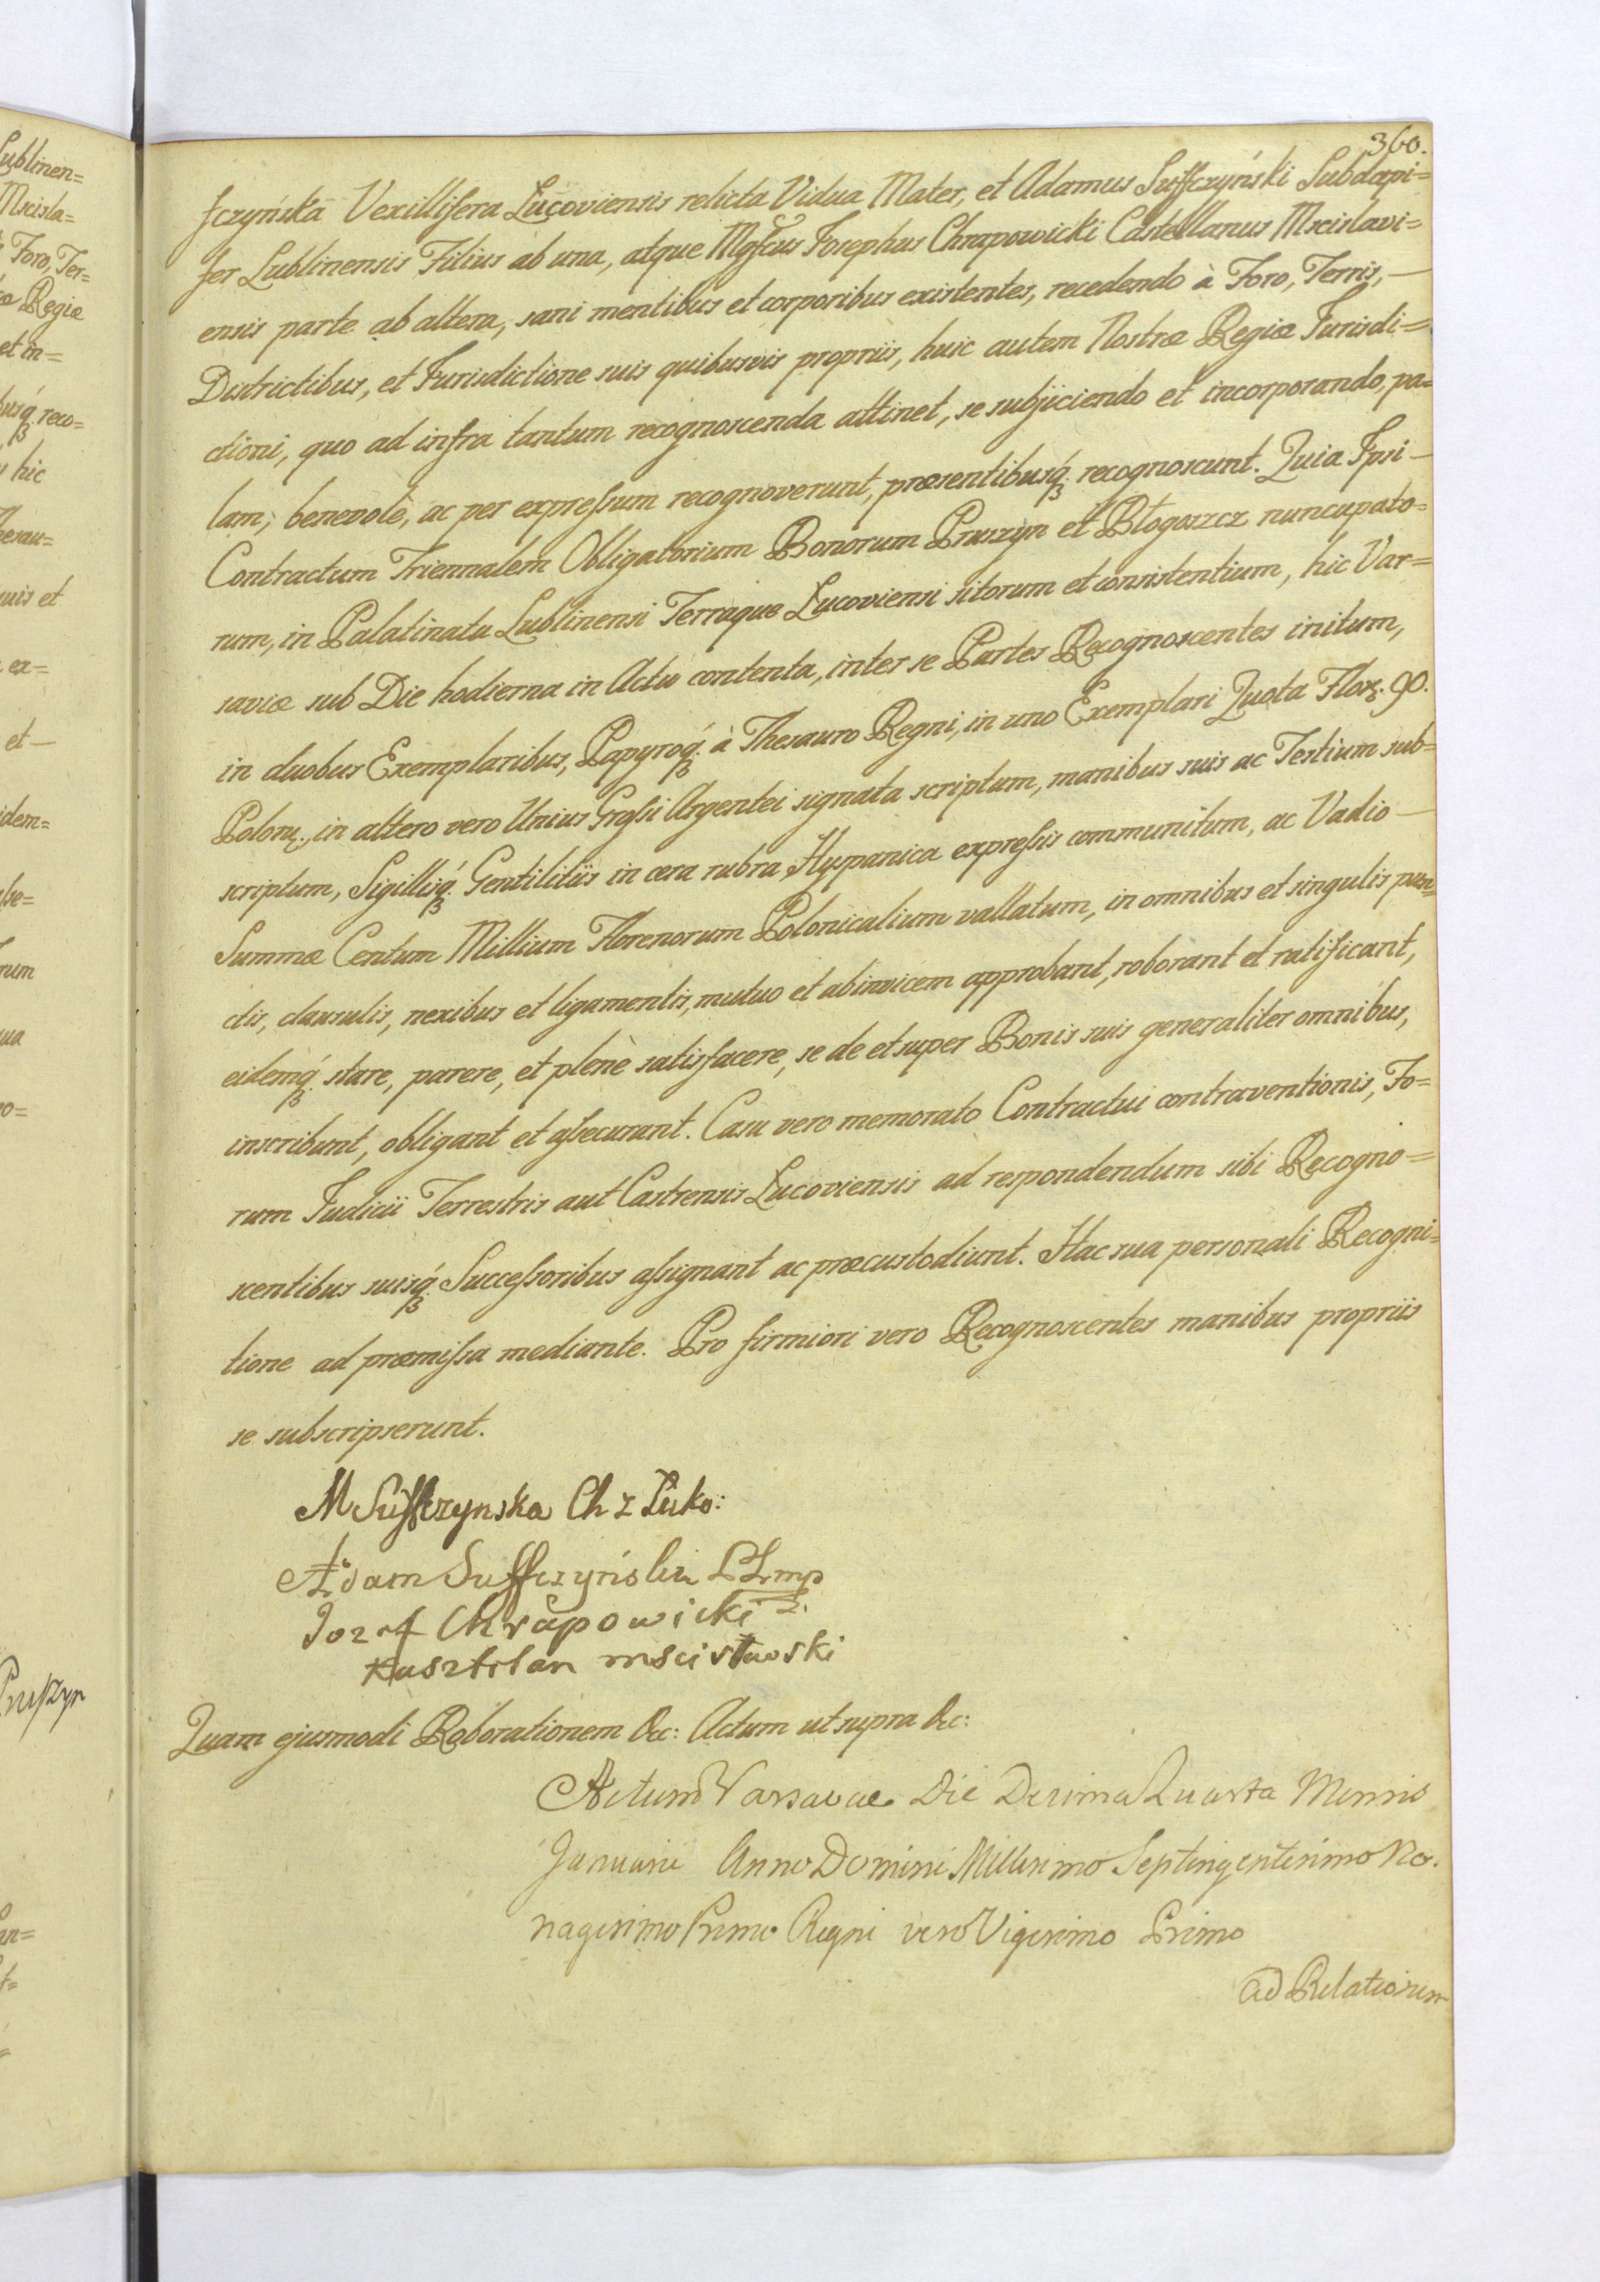 360.
fczyńska Vexillifera Lucoviensis relicta Vidua Mater, et Adamus Suffczyński Subdapi=
fer Lublinensis Filius ab una, atque Mgfcus Josephus Chrapowicki Castellanus Mscislavi=
ensis parte ab altera, sani mentibus et corporibus existentes, recedendo à Foro, Terris, —
Districtibus, et Jurisdictione suis quibusvis propriis, huic autem Nostræ Regiæ Jurisdi=
ctioni, quo ad infra tantum recognoscenda attinet, se subjiciendo et incorporando, pa=
lam, benevolè, ac per expressum recognoverunt, præsentibusq́ recognoscunt. Quia Ipsi —
Contractum Triennalem Obligatorium Bonorum Pruszyn et Błogoszcz nuncupato=
rum, in Palatinatu Lublinensi Terraque Lucoviensi sitorum et consistentium, hic Var=
saviæ sub Die hodierna in Actu contenta, inter se Partes Recognoscentes initum,
in duobus Exemplaribus, Papyroq́ à Thesauro Regni, in uno Exemplari Quota Flor. 90.
Polon., in altero vero Unius Grossi Argentei signata scriptum, manibus suis ac Testium sub=
scriptum, Sigillisq́ Gentilitiis in cera rubra Hyspanica expressis communitum, ac Vadio —
Summæ Centum Millium Florenorum Polonicalium vallatum, in omnibus et singulis pun=
ctis, clausulis, nexibus et ligamentis, mutuo et abinvicem approbant, roborant et ratificant,
eidemq́ stare, parere, et plenè satisfacere, se de et super Bonis suis generaliter omnibus,
inscribunt, obligant et assecurant. Casu vero memorato Contractui contraventionis, Fo=
rum Judicii Terrestris aut Castrensis Lucoviensis ad respondendum sibi Recogno=
scentibus suisq́ Successoribus assignant ac præcustodiunt. Hac sua personali Recogni=
tione ad præmissa mediante. Pro firmiori vero Recognoscentes manibus propriis
se subscripserunt.
M Suffczynska Ch z Łuko:
Adam Suffczyński PLmp
Jozef Chrapowicki
Kasztelan mscisławski
Quam ejusmodi Roborationem &c: Actum ut supra &c:
Actum Varsaviae Die Decima Quarta Mensis
Januarii Anno Domini Millesimo Septingentesimo No.
nagesimo Primo Regni vero Vigesimo Primo
ad Relationem